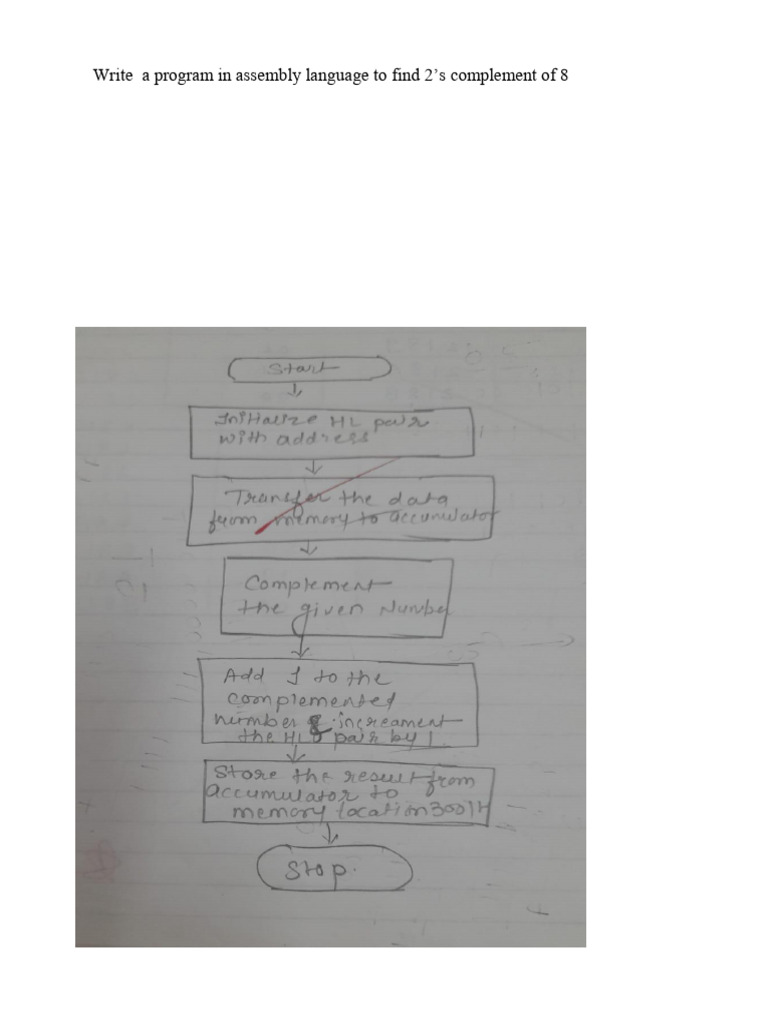 Write  a program in assembly language to find 2's complement of 8
Start
Initialize HL pair
with address
Transfer the data
from memory to accumulator
Complement
the given Number
Add 1 to the
complemented
number & increament
the HL pair by 1.
Store the result from
accumulator to
memory location 3001H
Stop.